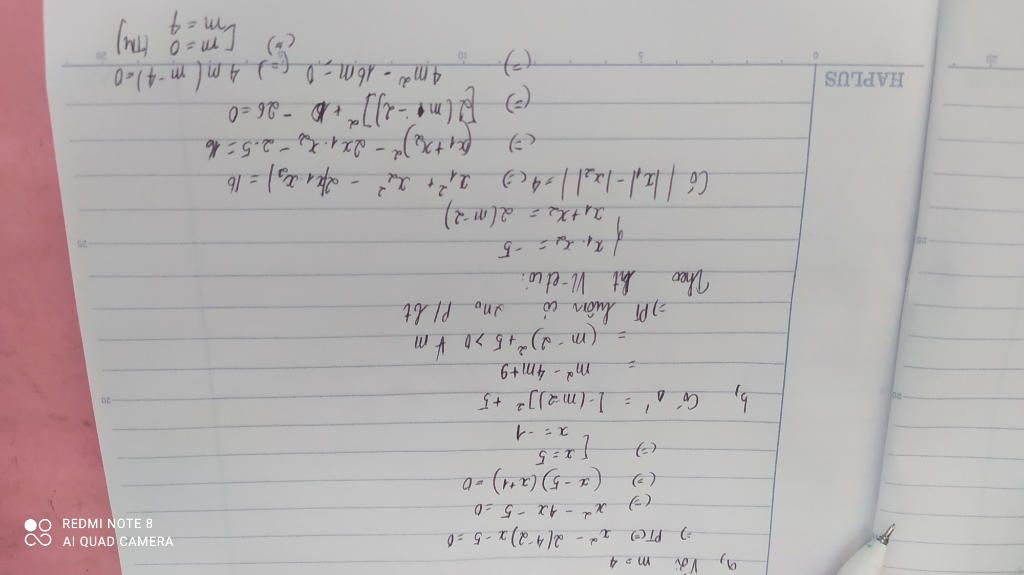 a, Với m = 4
=> PT (=) x² - 2(4-2)x - 5 = 0
(=) x² - 4x - 5 = 0
(=) (x - 5)(x + 1) = 0
(=) [ x = 5
x = -1
b, Có Δ' = [-(m-2)]² + 5
= m² - 4m + 9
= (m - 2)² + 5 > 0 ∀ m
=> PT luôn có 2 no P/bt
Theo ht Vi-et có:
{ x1 . x2 = -5
x1 + x2 = 2(m-2)
Có | |x1| - |x2| | = 4 (=) x1² + x2² - 2|x1.x2| = 16
(=) (x1 + x2)² - 2x1.x2 - 2.5 = 16
(=) [2(m - 2)]² + 10 - 26 = 0
(=) 4m² - 16m = 0 (=) 4m(m - 4) = 0
(=) [ m = 0 (TM)
m = 4
HAPLUS
0
5
10
20
20
25
20
25
20
REDMI NOTE 8
AI QUAD CAMERA